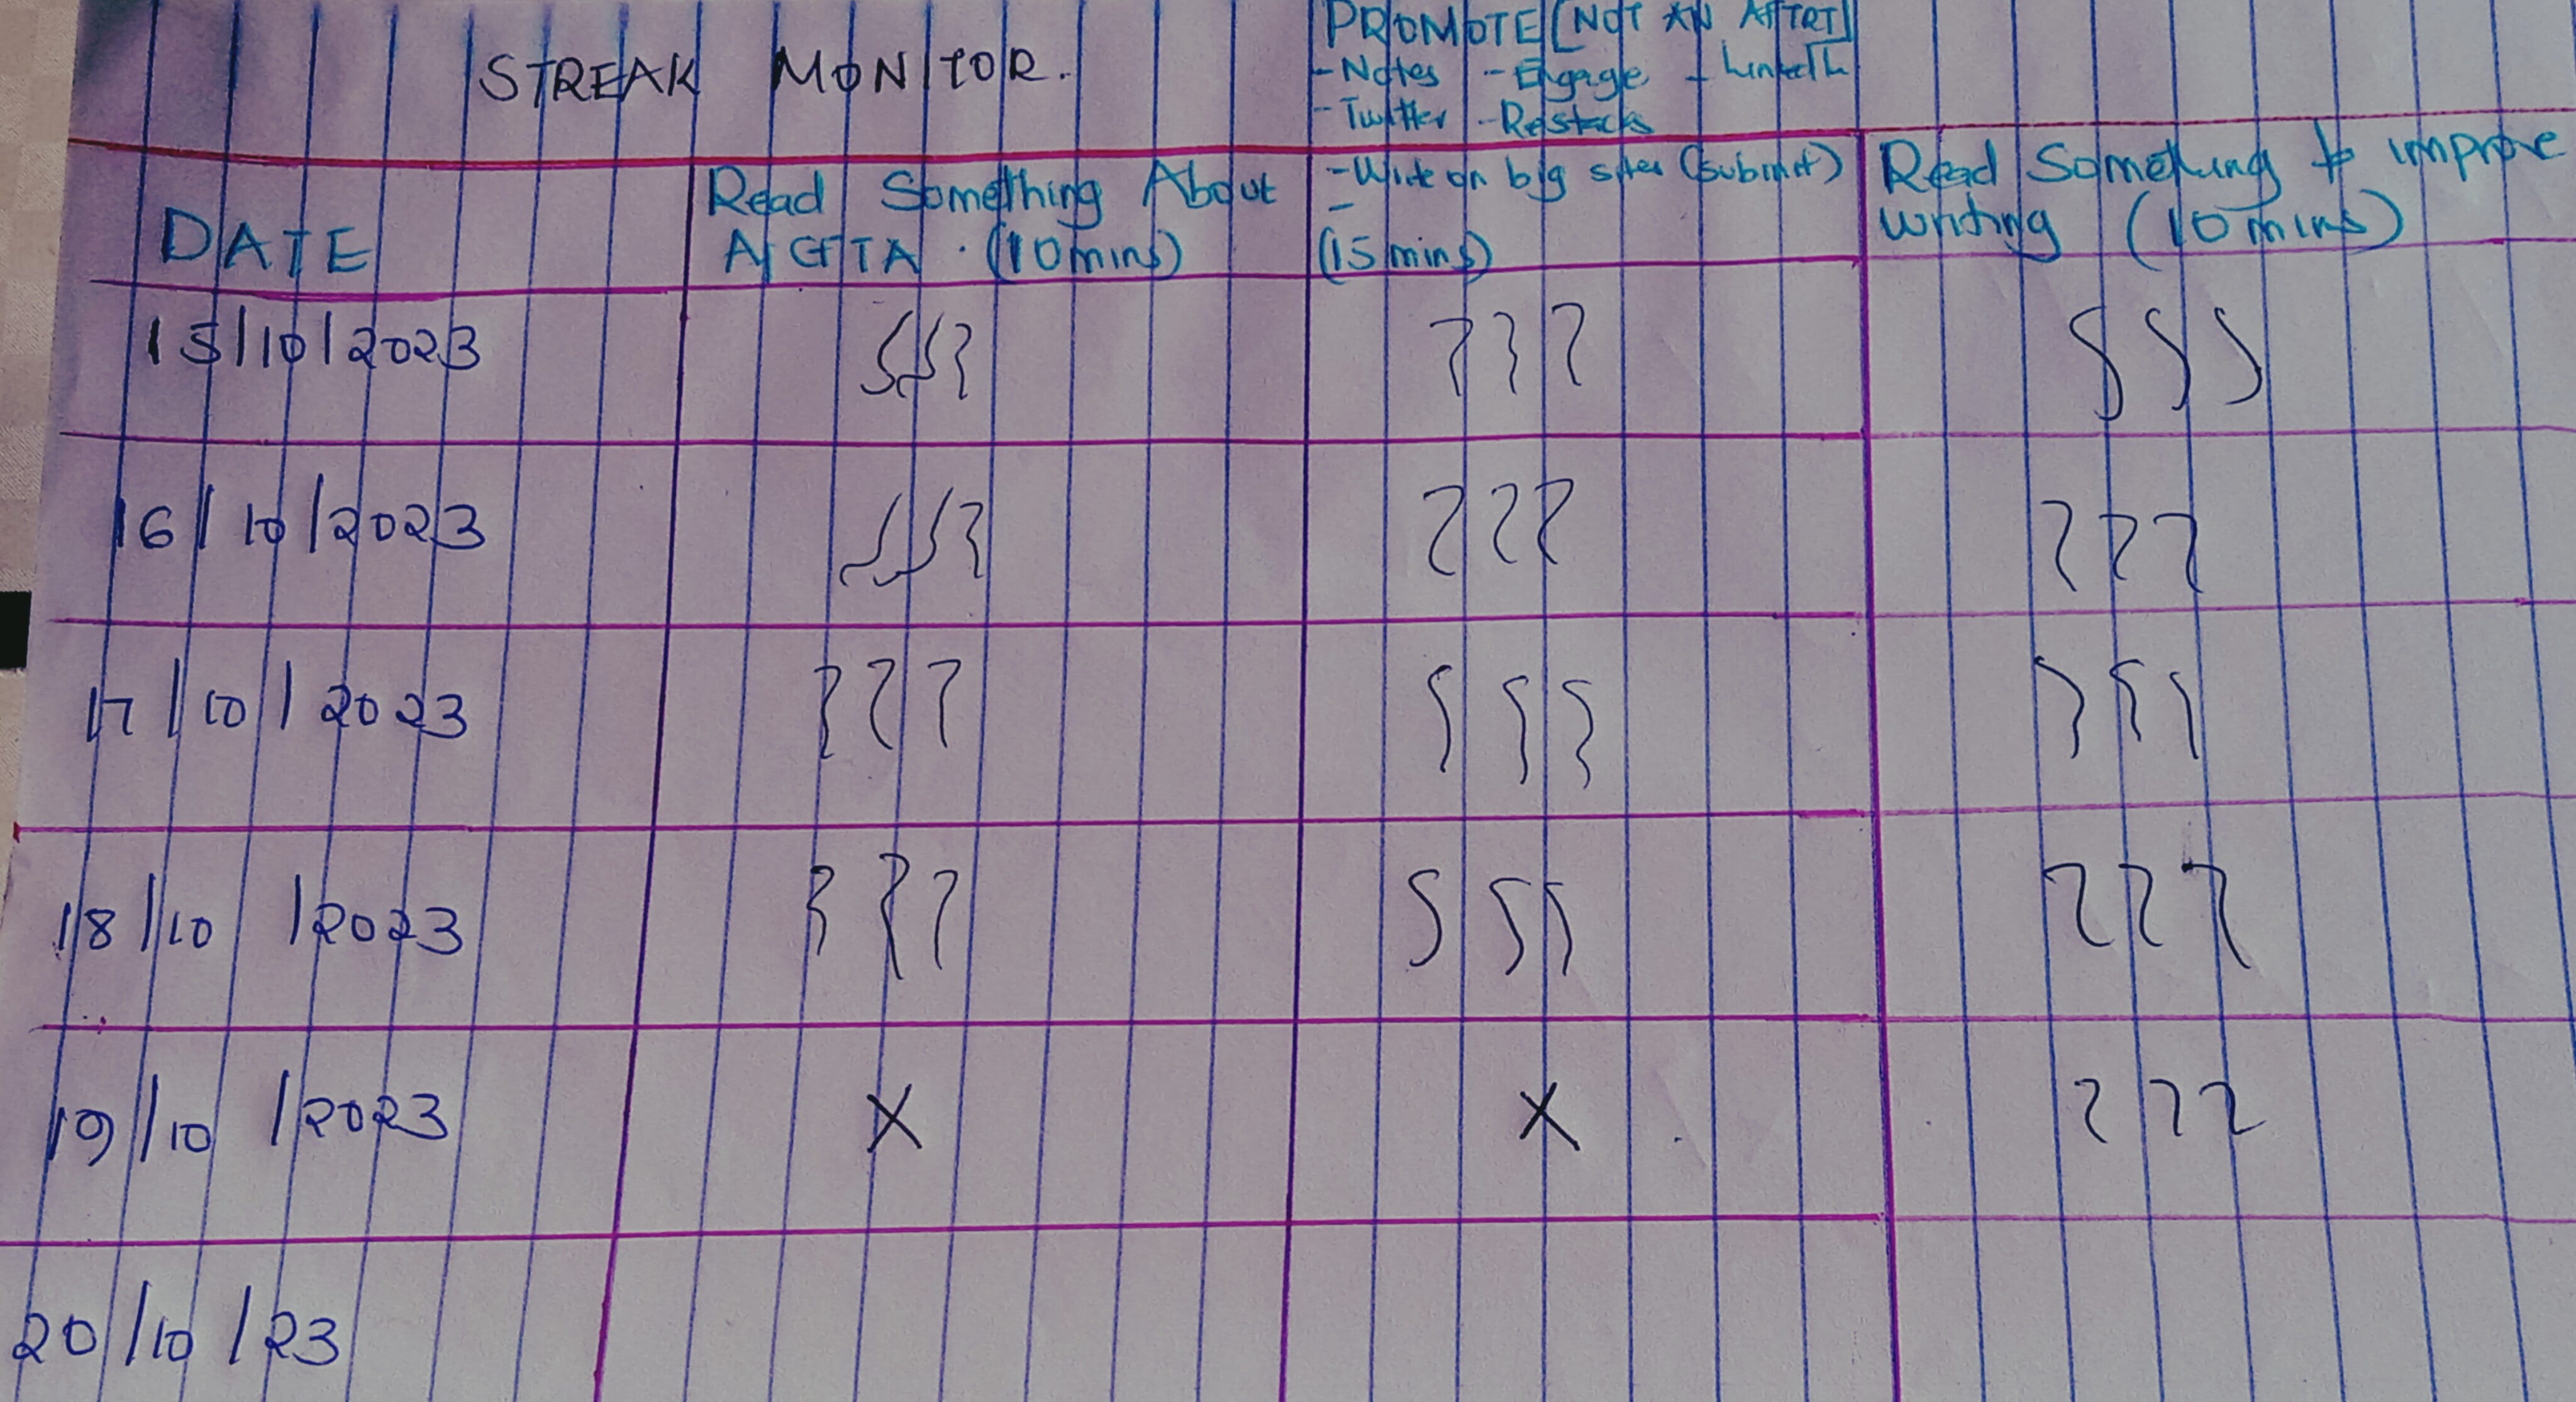 STREAK MONITOR.
PROMOTE [NOT AN
- Notes - Engage - LinkedIn
- Twitter - Restacks
DATE
Read Something About
(10mins)
- Write on big sites (submit)
-
(15 mins)
Read Something to improve
writing (10 mins)
15/10/2023
16/10/2023
17/10/2023
18/10/2023
19/10/2023 X X
20/10/23